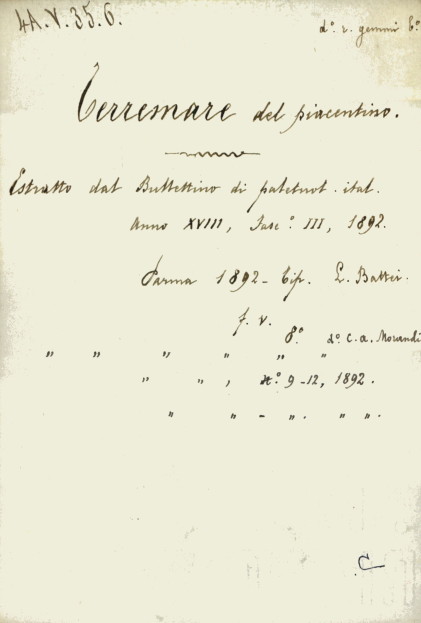 4A.V.35.6.
d°. r. gemmi 6°
Terremare del piacentino.
Estratto dal Bullettino di paletnol. ital.
Anno XVIII, Fasc°. III, 1892.
Parma 1892 - Tip. L. Battei.
f. v.
8°. d°. C. A. Morandi
„ „ „ „ „ „
„ „ , n° 9-12, 1892.
„ „ - „. „ „.
C